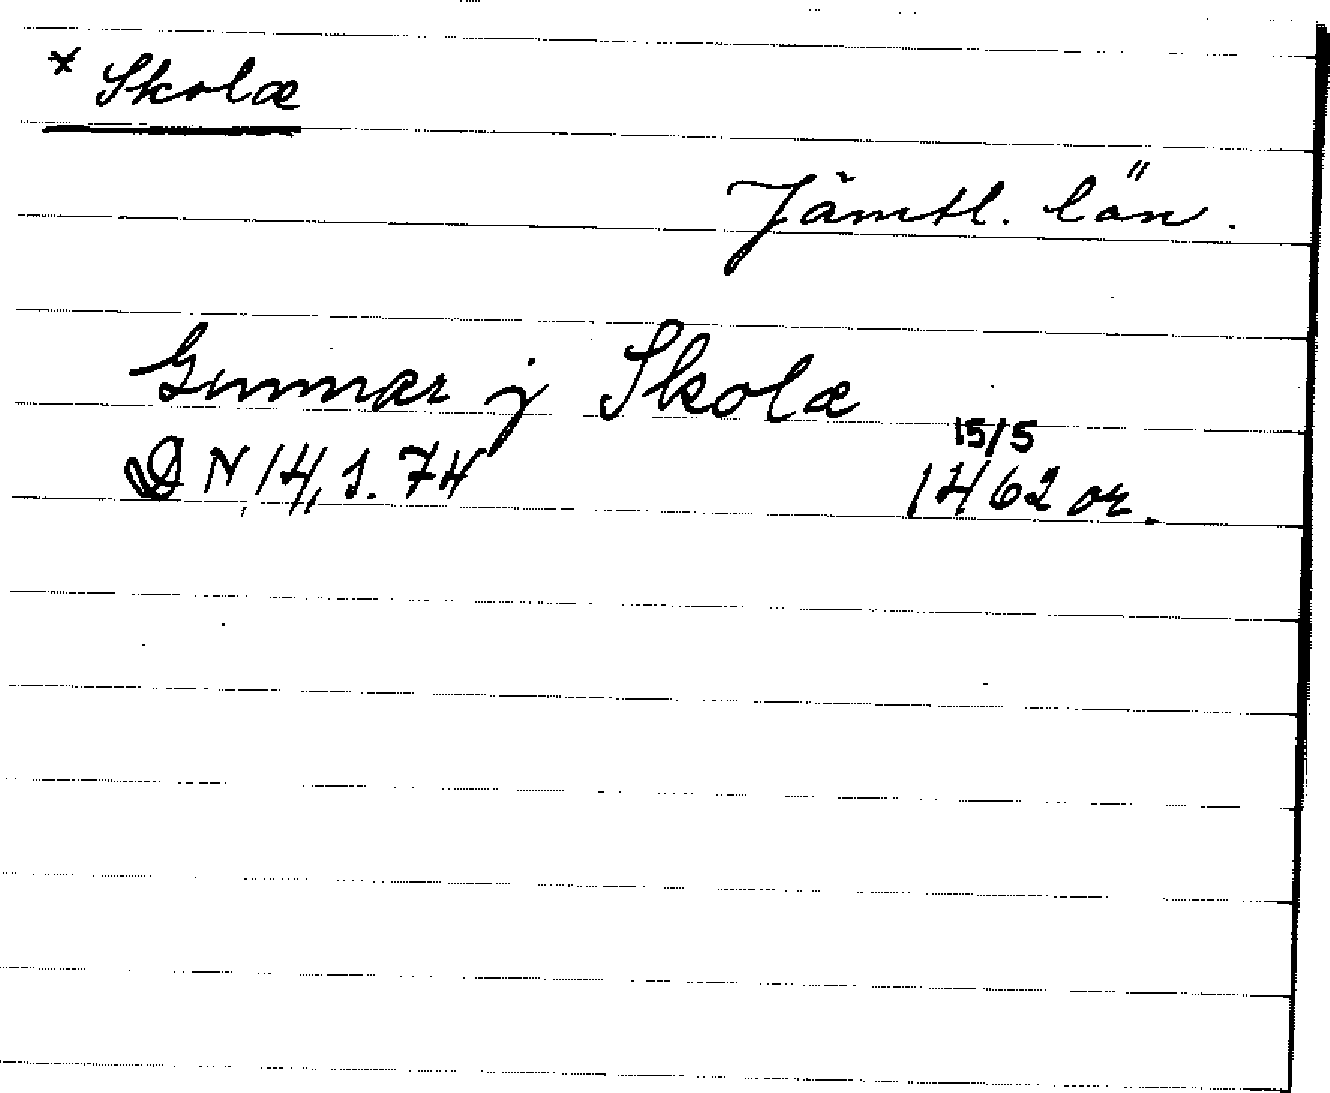 * Skolæ
Jämtl. län.
Gunnar j Skolæ
15/5
DN 14, s. 74 1462 or.